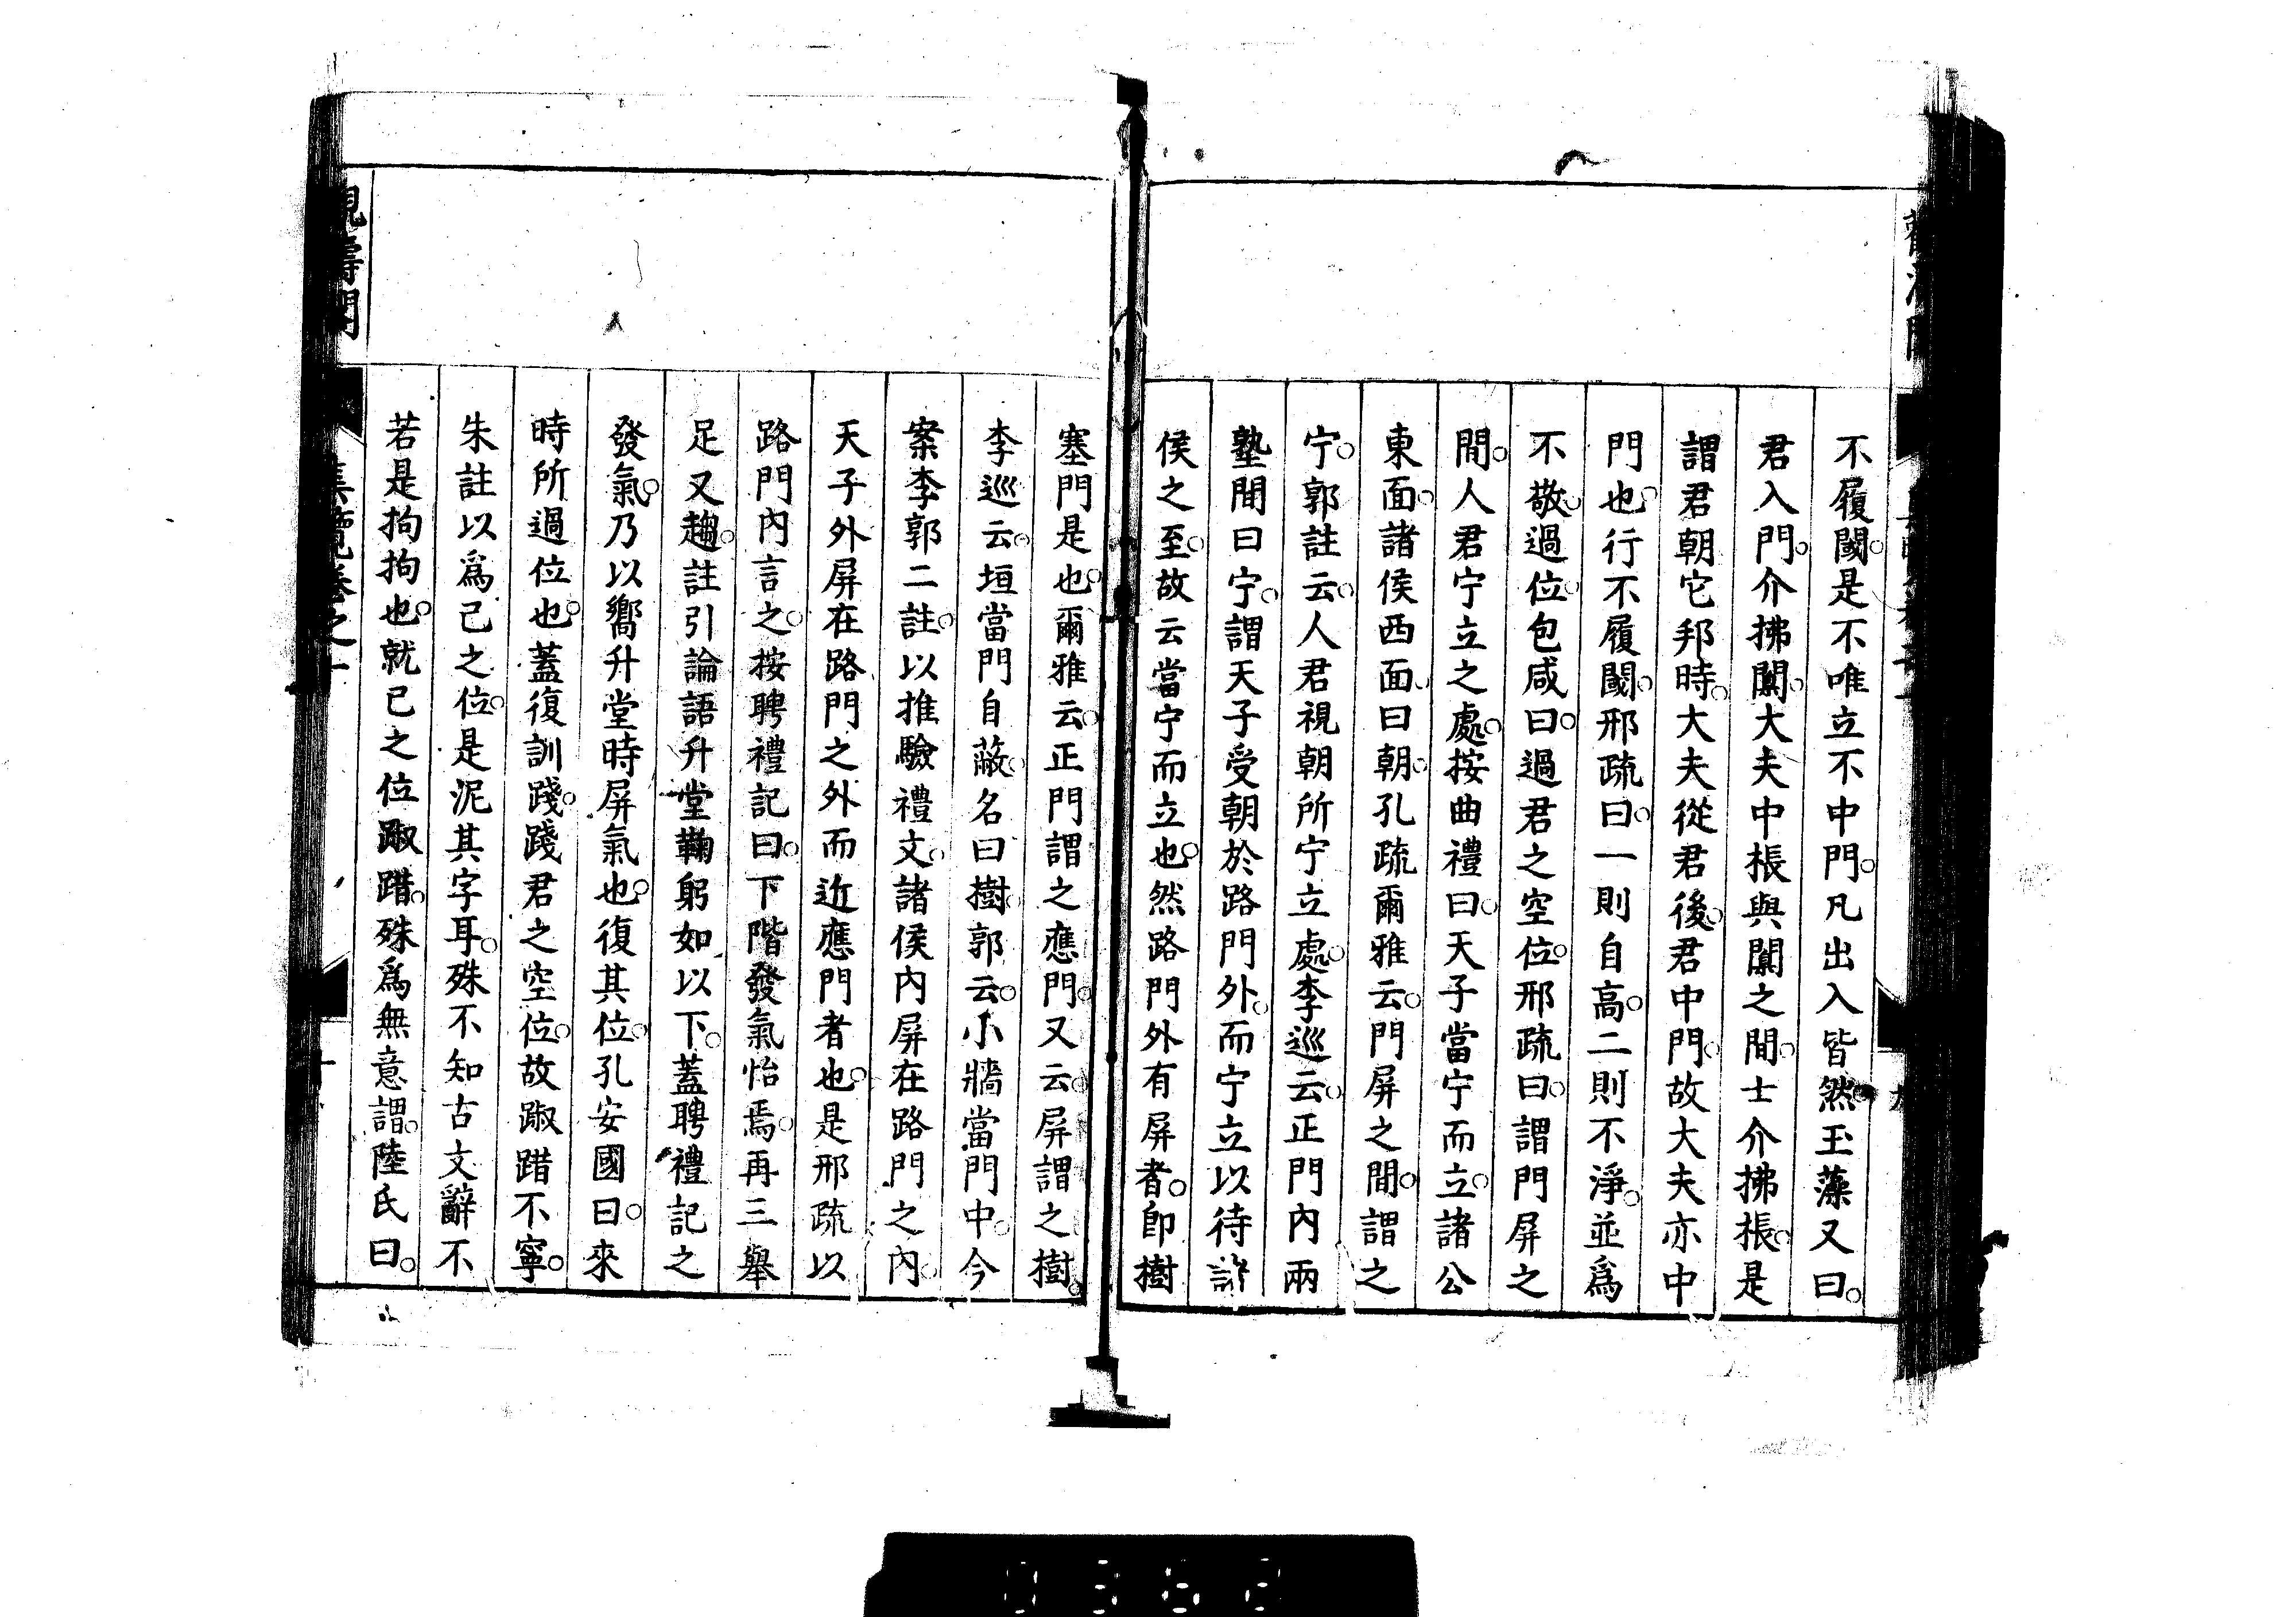 不履閾。是不唯立不中門。凡出入皆然。玉藻又曰。
君入門。介拂闑。大夫中棖與闑之間。士介拂棖。是
謂君朝它邦時。大夫從君後。君中門。故大夫亦中
門也。行不履閾。邢疏曰。一則自高。二則不淨。並爲
不敬。過位。包咸曰。過君之空位。邢疏曰。謂門屏之
間。人君宁立之處。按曲禮曰。天子當宁而立。諸公
東面。諸侯西面。曰朝。孔疏爾雅云。門屏之間。謂之
宁。郭註云。人君視朝所宁立處。李巡云。正門內兩
塾間曰宁。謂天子受朝於路門外。而宁立以待諸
侯之至。故云當宁而立也。然路門外有屏者。卽樹
塞門是也。爾雅云。正門謂之應門。又云。屏謂之樹。
李巡云。垣當門自蔽。名曰樹。郭云。小牆當門中。今
案李郭二註。以推驗禮文。諸侯內屏在路門之內。
天子外屏在路門之外而近應門者也。是邢疏以
路門內言之。按聘禮記曰。下階發氣怡焉。再三舉
足又趨。註引論語升堂鞠躬如以下。蓋聘禮記之
發氣。乃以嚮升堂時屏氣也。復其位。孔安國曰。來
時所過位也。蓋復訓踐。踐君之空位。故踧踖不寧。
朱註以爲己之位。是泥其字耳。殊不知古文辭不
若是拘拘也。就已之位踧踖。殊爲無意謂。陸氏曰。
集覽卷之十